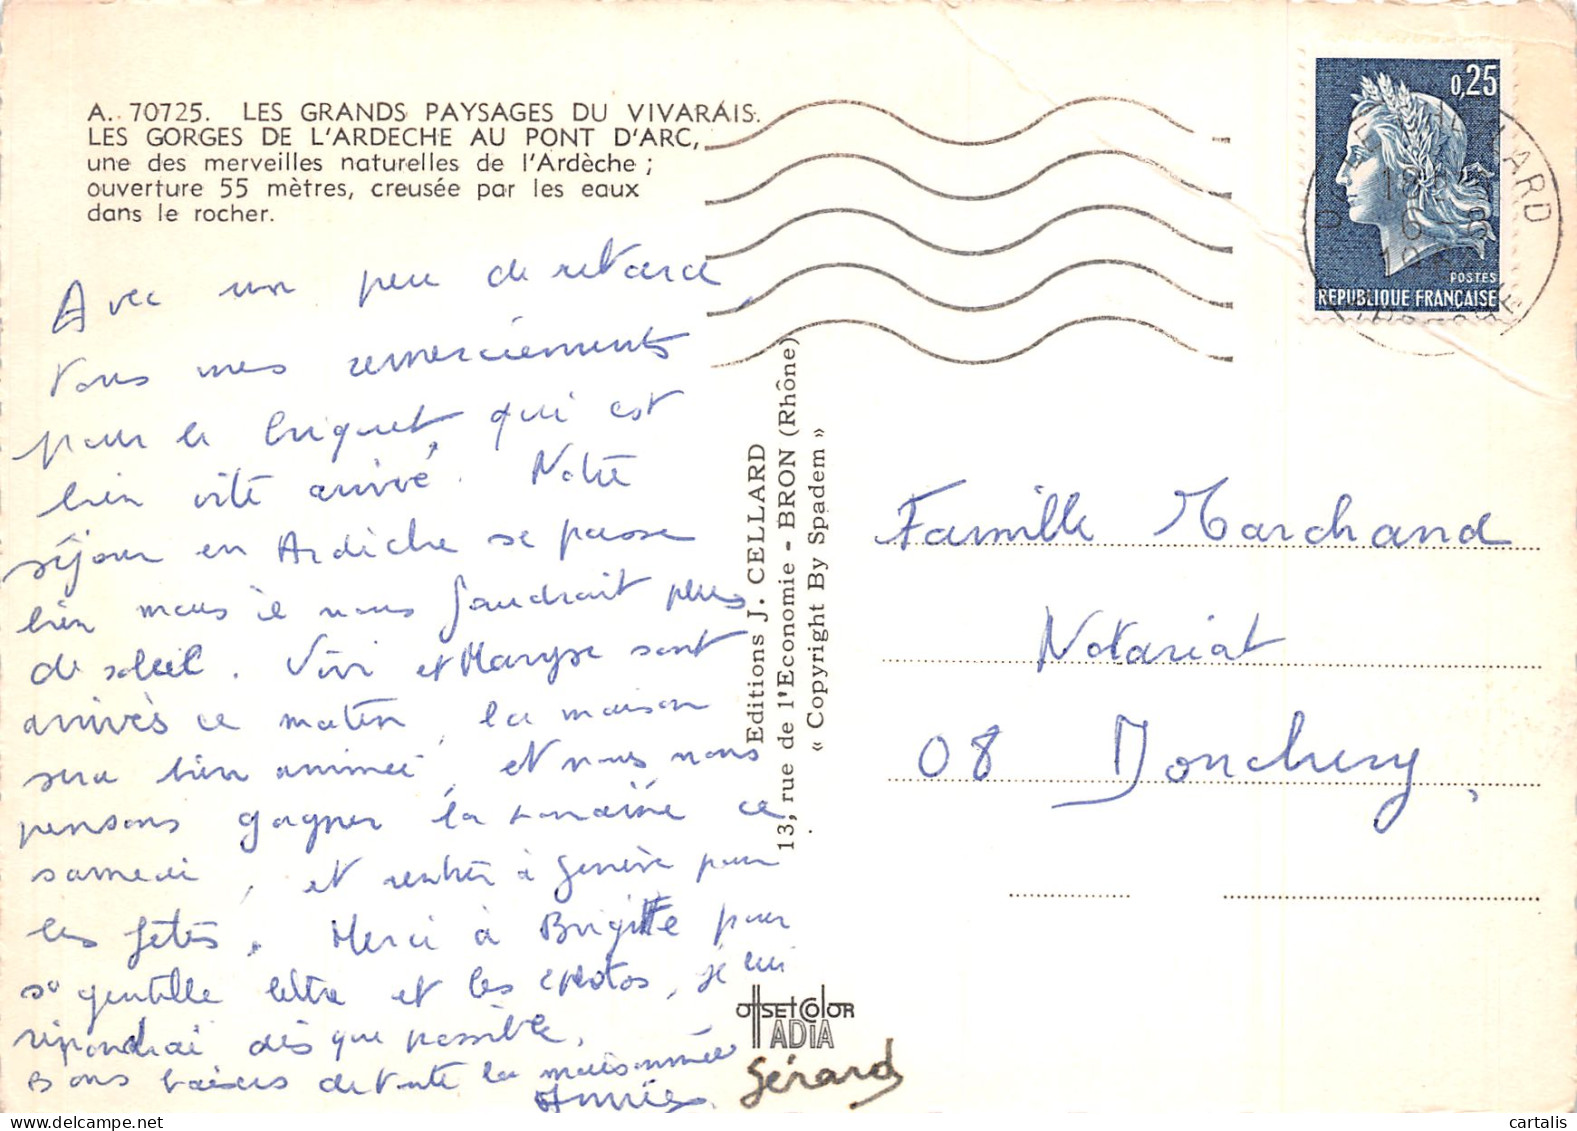 A. 70725. LES GRANDS PAYSAGES DU VIVARAIS.
LES GORGES DE L'ARDECHE AU PONT D'ARC,
une des merveilles naturelles de l'Ardèche ;
ouverture 55 mètres, creusée par les eaux
dans le rocher.
Avec un peu de retard,
tous mes remerciements
pour le briquet qui est
bien vite arrivé. Notre
séjour en Ardèche se passe
bien mais il nous faudrait plus
de soleil. Vivi et Maryse sont
arrivés ce matin, la maison
sera bien animée, et nous nous
pensons gagner la semaine ce
samedi, et rentrer à Genève pour
les fêtes. Merci à Brigitte pour
sa gentille lettre et les photos, je lui
répondrai dès que possible.
Bons baisers de toute la maisonnée
Annie
Gérard
Editions J. CELLARD
13, rue de l'Economie - BRON (Rhône)
« Copyright By Spadem »
OFFSET COLOR
ADIA
0,25
POSTES
REPUBLIQUE FRANÇAISE
Famille Marchand
Notariat
08 Donchery
cartalis.com